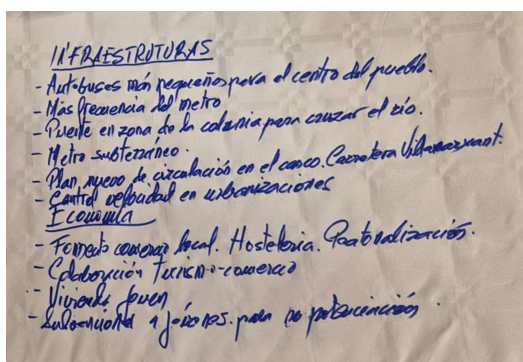 INFRAESTRUTURAS
- Autobuses más pequeños para el centro del pueblo.
- Más frecuencia del metro
- Puente en zona de la colonia para cruzar el río.
- Metro subterráneo.
- Plan nuevo de circulación en el casco. Carretera Vilamarxant.
- Control velocidad en urbanizaciones
Economía
- Fomento comercio local. Hostelería. Peatonalización.
- Colaboración Turismo-comercio
- Vivienda Joven
- a jóvenes. para